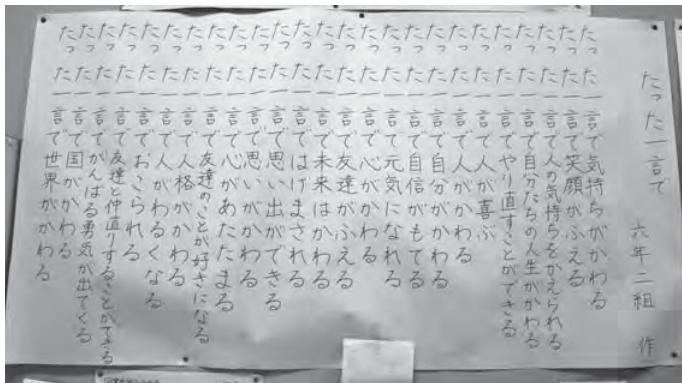 たった一言で
六年二組 作
たった一言で気持ちがかわる
たった一言で笑顔がふえる
たった一言で人の気持ちをかえられる
たった一言で自分たちの人生がかわる
たった一言でやり直すことができる
たった一言で人が喜ぶ
たった一言で人がかわる
たった一言で自分がかわる
たった一言で自信がもてる
たった一言で元気になれる
たった一言で心がかわる
たった一言で友達がふえる
たった一言で未来はかわる
たった一言ではげまされる
たった一言で思い出ができる
たった一言で思いがかわる
たった一言で心があたたまる
たった一言で友達のことが好きになる
たった一言で人格がかわる
たった一言で人がわるくなる
たった一言でおこられる
たった一言で友達と仲直りすることができる
たった一言でがんばる勇気が出てくる
たった一言で国がかわる
たった一言で世界がかわる